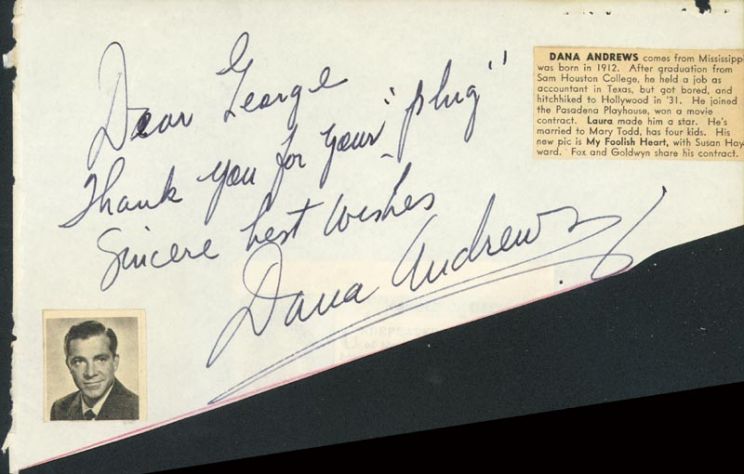 Dear George
Thank you for your "plug"
Sincere best wishes
Dana Andrews
DANA ANDREWS comes from Mississippi
was born in 1912. After graduation from
Sam Houston College, he held a job as
accountant in Texas, but got bored, and
hitchhiked to Hollywood in '31. He joined
the Pasadena Playhouse, won a movie
contract. Laura made him a star. He's
married to Mary Todd, has four kids. His
new pic is My Foolish Heart, with Susan Hay-
ward. Fox and Goldwyn share his contract.